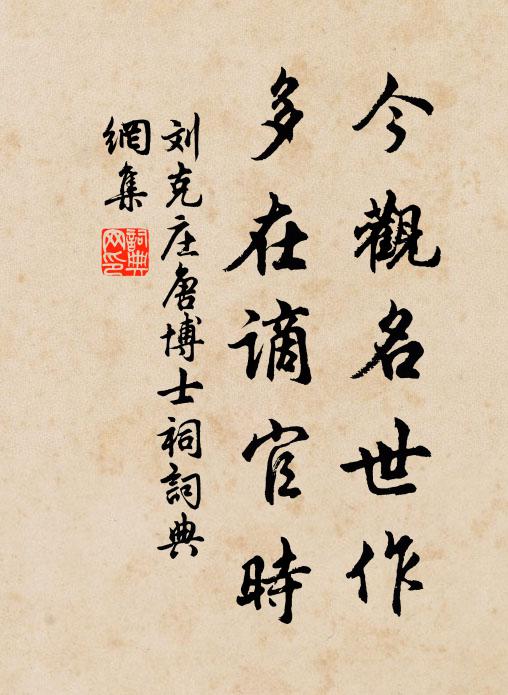 今觀名世作
多在谪官時
刘克庄唐博士祠詞典
網集
詞典
网印